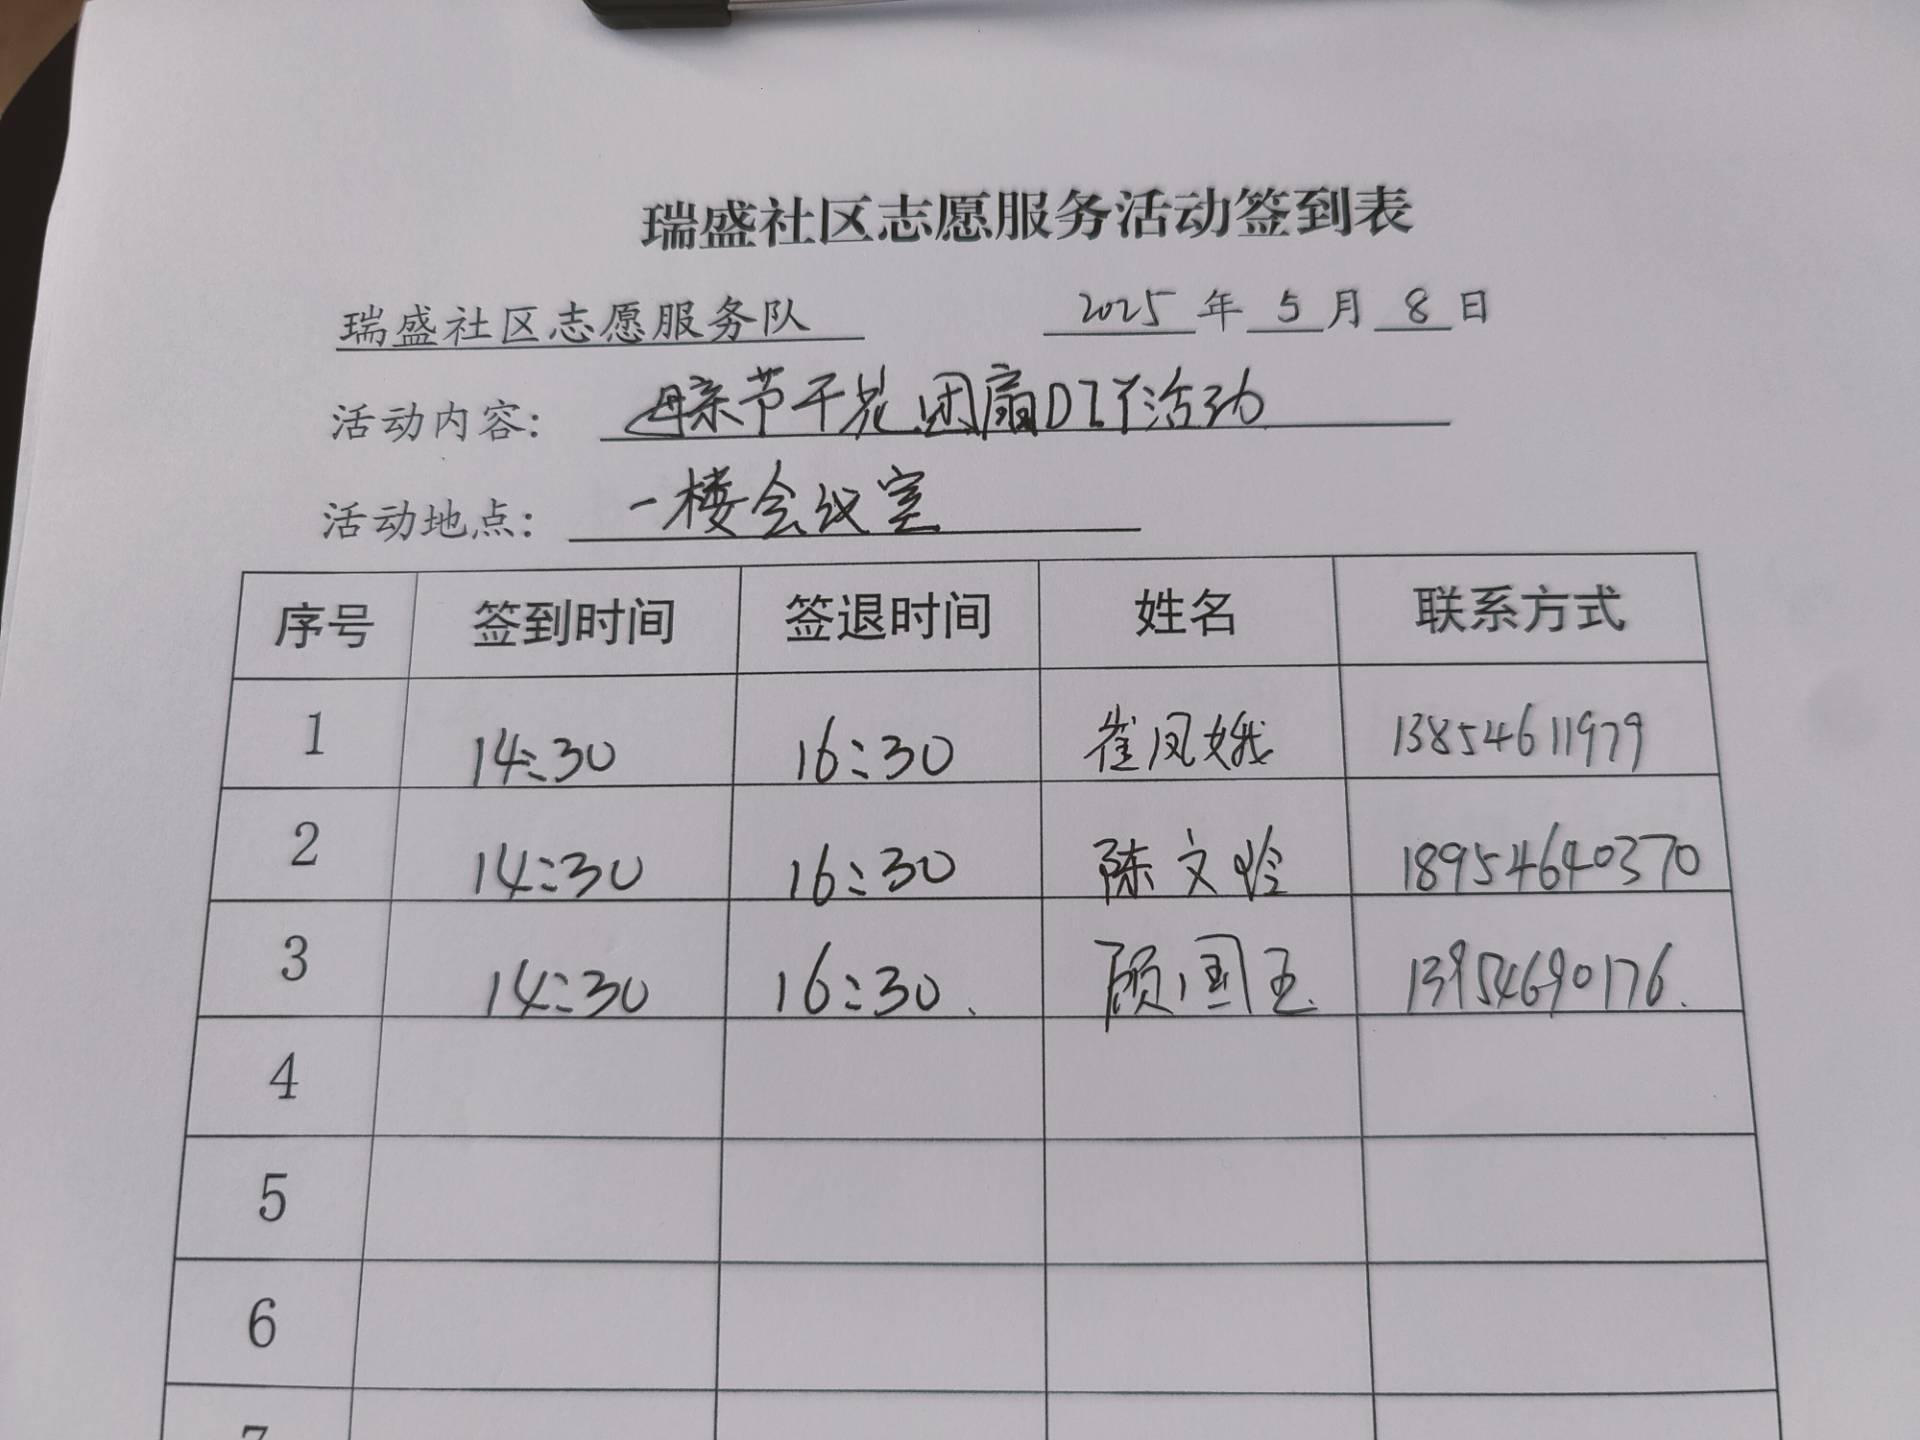 瑞盛社区志愿服务活动签到表
瑞盛社区志愿服务队 2025 年 5 月 8 日
活动内容: 母亲节干花团扇DIY活动
活动地点: 一楼会议室
序号 签到时间 签退时间 姓名 联系方式
1 14:30 16:30 崔凤娥 13854611979
2 14:30 16:30 陈文玲 18954640370
3 14:30 16:30. 顾国玉 13954690176.
4
5
6
7